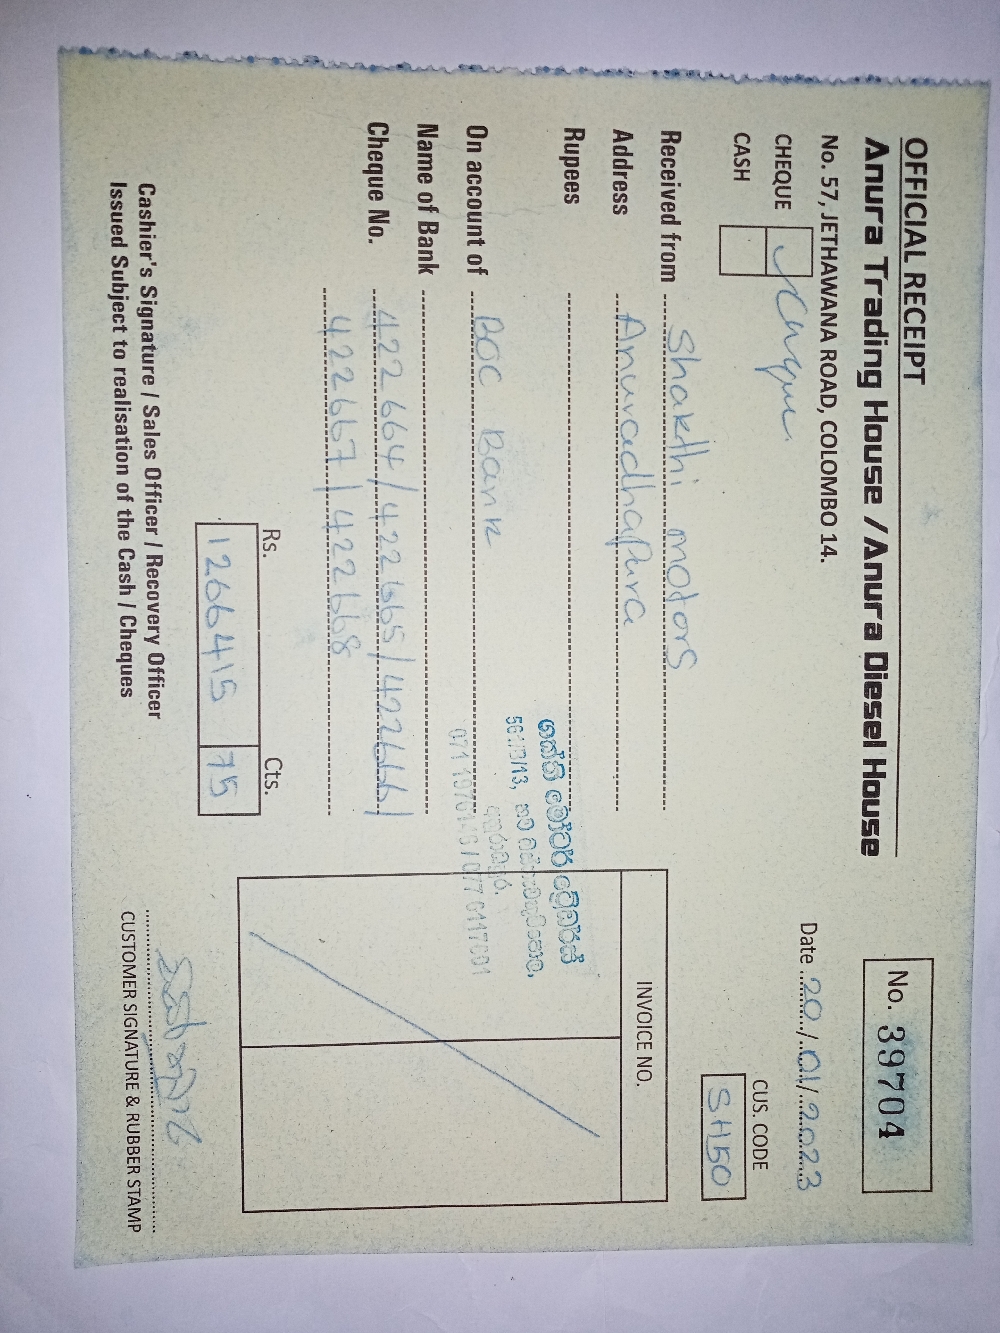 OFFICIAL RECEIPT
Anura Trading House / Anura Diesel House
No. 57, JETHAWANA ROAD, COLOMBO 14.
No. 39704
Date 20/01/2023
CHEQUE
CASH
CUS. CODE
SH50
Received from Shakthi motors
Address Anuradhapura
Rupees
INVOICE NO.
On account of BOC Bank
Name of Bank
Cheque No. 422664/422665/422666/
422667/422668
ශක්ති මෝටර් ට්‍රේඩර්ස්
561/B/13,
Rs. Cts.
1266415 75
Cashier's Signature / Sales Officer / Recovery Officer
Issued Subject to realisation of the Cash / Cheques
CUSTOMER SIGNATURE & RUBBER STAMP